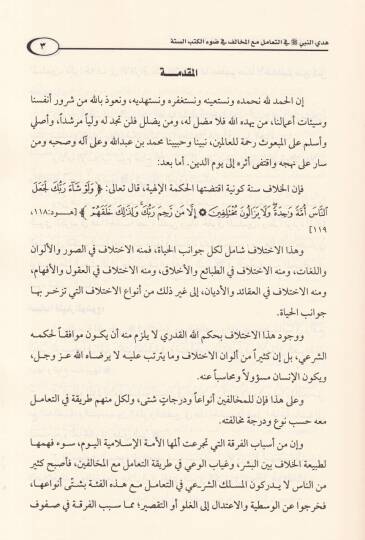 هدي النبي ﷺ في التعامل مع المخالف في ضوء الكتب الستة
٣
المقدمـــة
إن الحمد لله نحمده ونستعينه ونستغفره ونستهديه، ونعوذ بالله من شرور أنفسنا
وسيئات أعمالنا، من يهده الله فلا مضل له، ومن يضلل فلن تجد له ولياً مرشداً، وأصلي
وأسلم على المبعوث رحمة للعالمين، نبينا وحبيبنا محمد بن عبدالله وعلى آله وصحبه ومن
سار على نهجه واقتفى أثره إلى يوم الدين. أما بعد:
فإن الخلاف سنة كونية اقتضتها الحكمة الإلهية، قال تعالى: ﴿ وَلَوْ شَآءَ رَبُّكَ لَجَعَلَ
ٱلنَّاسَ أُمَّةً وَٰحِدَةً ۖ وَلَا يَزَالُونَ مُخْتَلِفِينَ ۞ إِلَّا مَن رَّحِمَ رَبُّكَ ۚ وَلِذَٰلِكَ خَلَقَهُمْ ﴾ [هــود: ١١٨،
١١٩]
وهذا الاختلاف شامل لكل جوانب الحياة، فمنه الاختلاف في الصور والألوان
واللغات، ومنه الاختلاف في الطبائع والأخلاق، ومنه الاختلاف في العقول والأفهام،
ومنه الاختلاف في العقائد والأديان، إلى غير ذلك من أنواع الاختلاف التي تزخر بها
جوانب الحياة.
ووجود هذا الاختلاف بحكم الله القدري لا يلزم منه أن يكون موافقاً لحكمه
الشرعي، بل إن كثيراً من ألوان الاختلاف وما يترتب عليه لا يرضاه الله عز وجل،
ويكون الإنسان مسؤولاً ومحاسباً عنه.
وعلى هذا فإن للمخالفين أنواعاً ودرجاتٍ شتى، ولكل منهم طريقة في التعامل
معه حسب نوع ودرجة مخالفته.
وإن من أسباب الفرقة التي تجرعت ألمها الأمة الإسلامية اليوم، سوء فهمها
لطبيعة الخلاف بين البشر، وغياب الوعي في طريقة التعامل مع المخالفين، فأصبح كثير
من الناس لا يدركون المسلك الشرعي في التعامل مع هذه الفئة بشتّى أنواعها،
فخرجوا عن الوسطية والاعتدال إلى الغلو أو التقصير؛ مما سبب الفرقة في صفوف